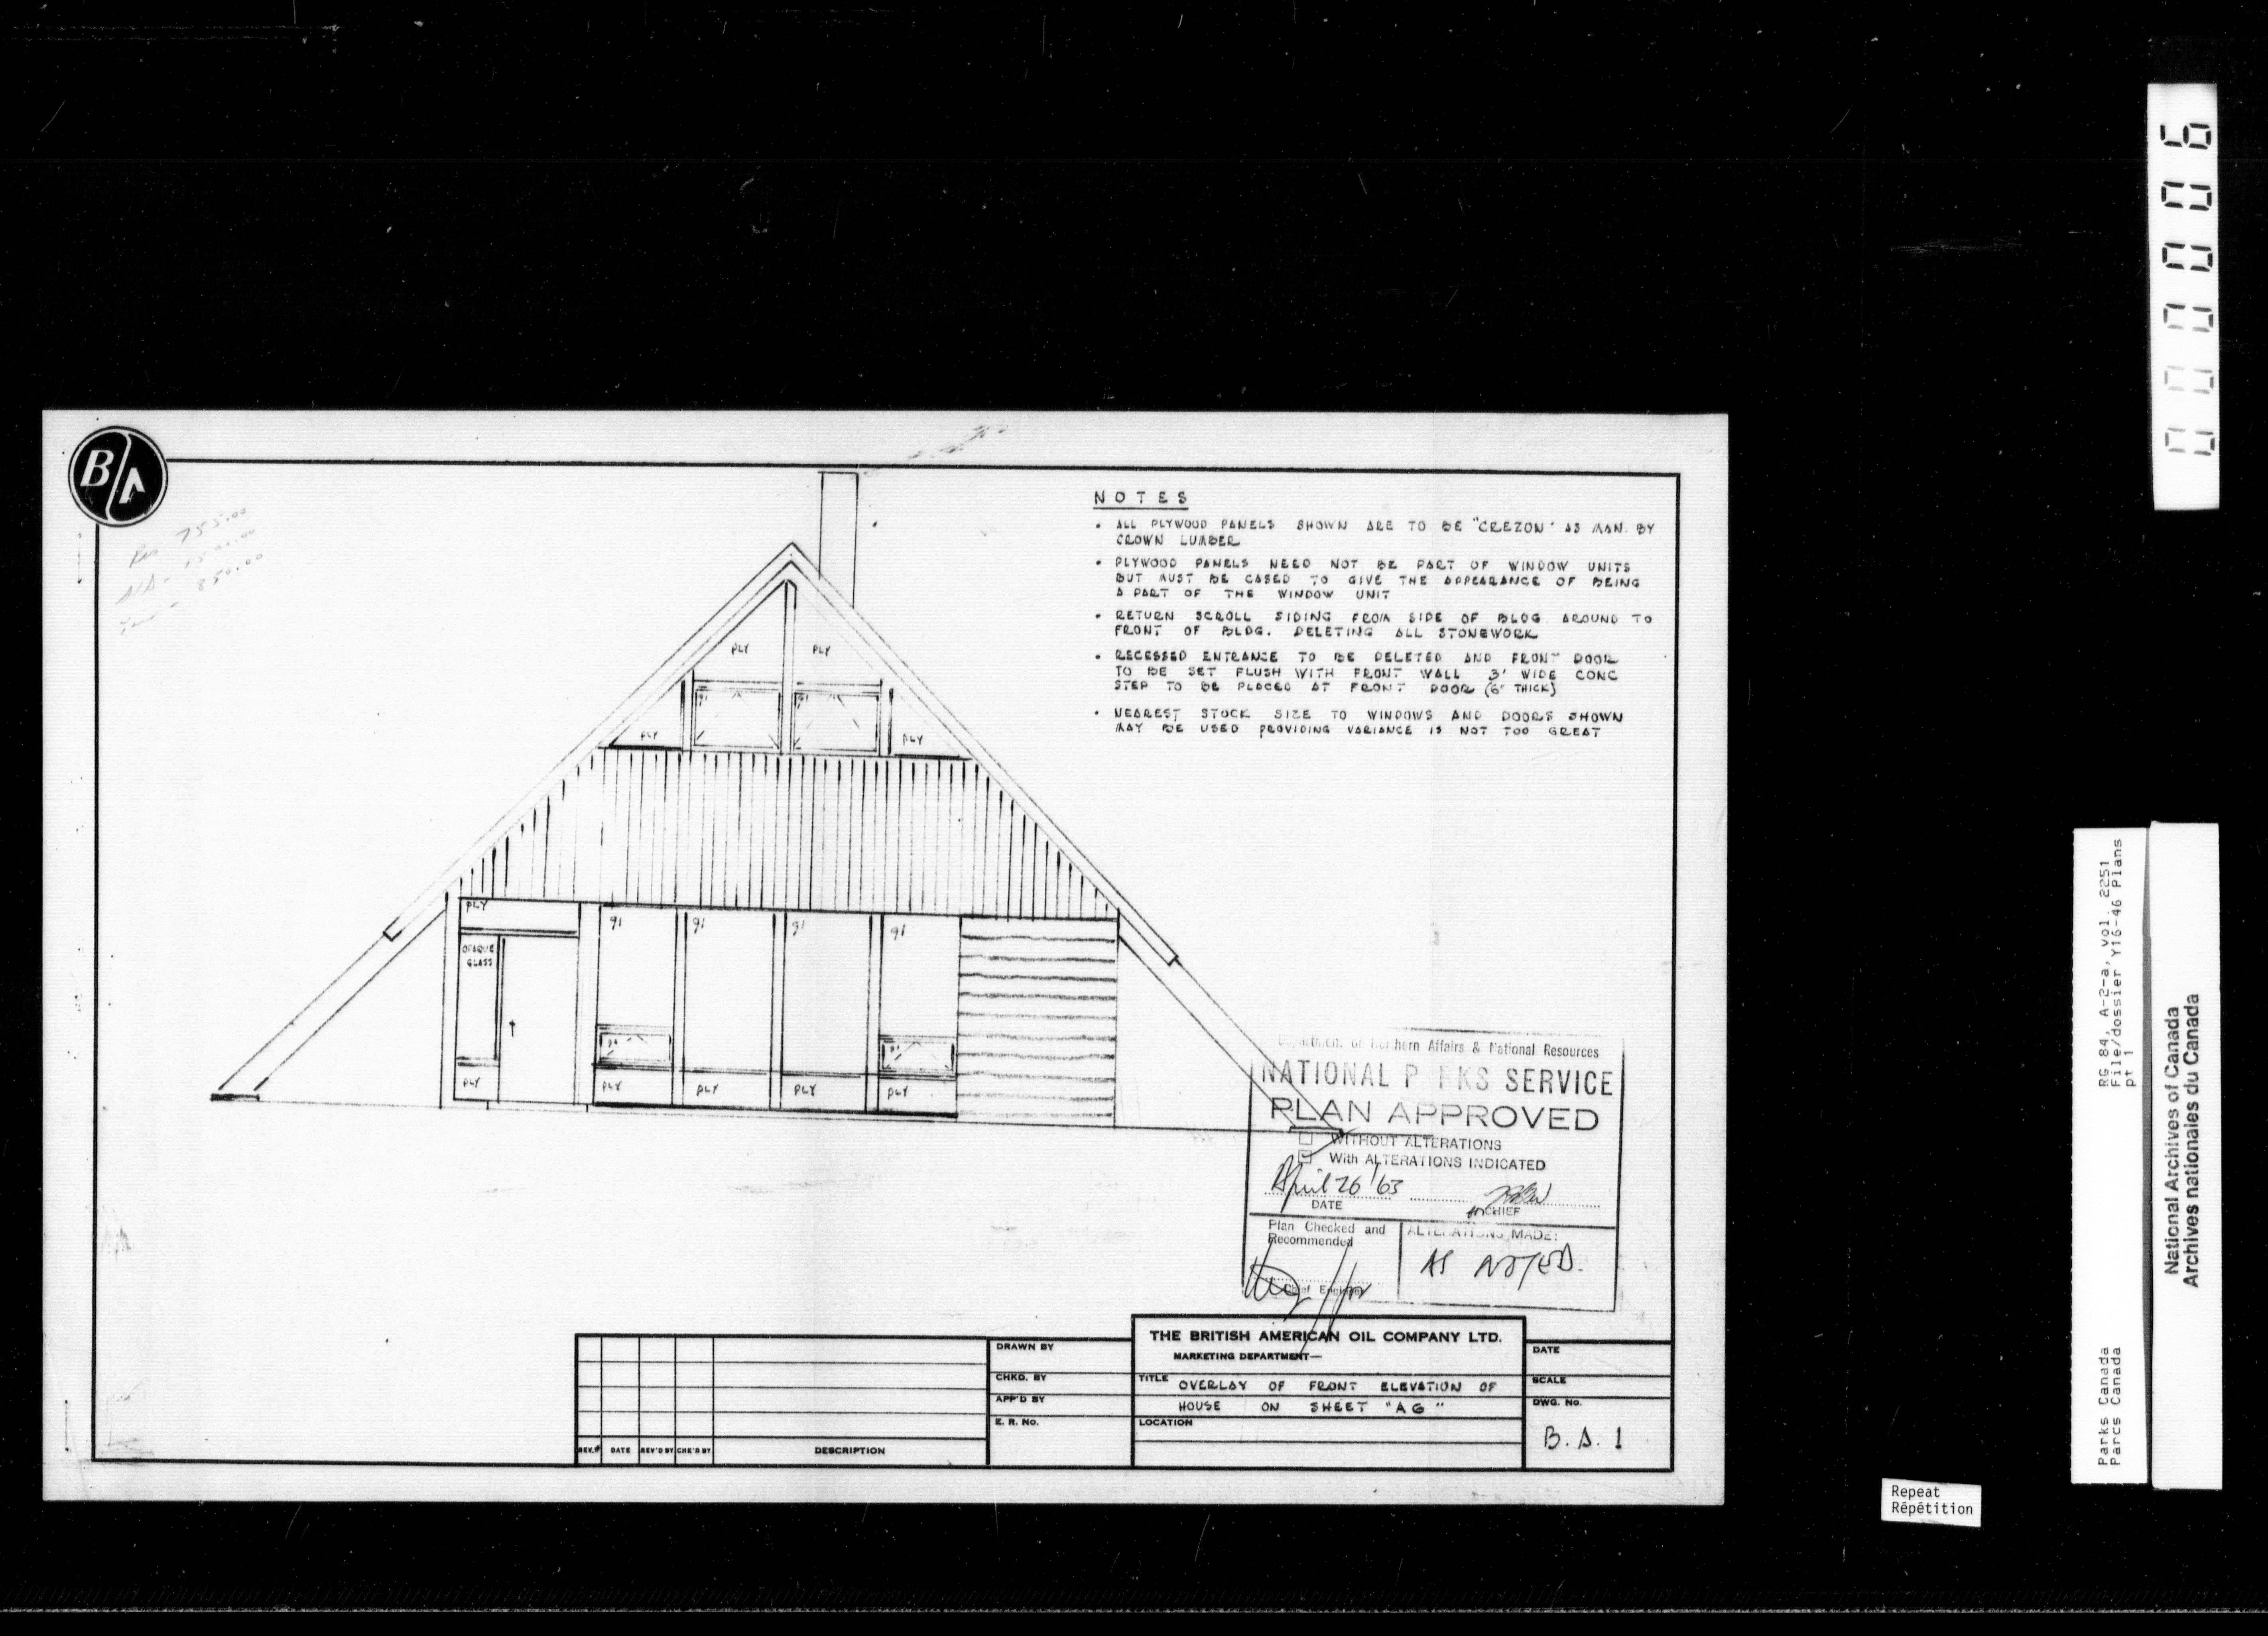 B/A
755.00
850.00
NOTES
• ALL PLYWOOD PANELS SHOWN ARE TO BE "CREZON" AS MAN. BY
CROWN LUMBER
• PLYWOOD PANELS NEED NOT BE PART OF WINDOW UNITS
BUT MUST BE CASED TO GIVE THE APPEARANCE OF BEING
A PART OF THE WINDOW UNIT
• RETURN SCROLL SIDING FROM SIDE OF BLDG. AROUND TO
FRONT OF BLDG. DELETING ALL STONEWORK
• RECESSED ENTRANCE TO BE DELETED AND FRONT DOOR
TO BE SET FLUSH WITH FRONT WALL 3' WIDE CONC
STEP TO BE PLACED AT FRONT DOOR (6" THICK)
• NEAREST STOCK SIZE TO WINDOWS AND DOORS SHOWN
MAY BE USED PROVIDING VARIANCE IS NOT TOO GREAT
PLY PLY
gl gl
PLY PLY
PLY
gl gl gl gl
OPAQUE
GLASS
gl gl
PLY PLY PLY PLY PLY
Department of Northern Affairs & National Resources
NATIONAL PARKS SERVICE
PLAN APPROVED
WITHOUT ALTERATIONS
With ALTERATIONS INDICATED
April 26 '63
DATE
CHIEF
Plan Checked and
Recommended
Chief Engineer
ALTERATIONS MADE:
AS NOTED.
REV.# DATE REV'D BY CHK'D BY DESCRIPTION
DRAWN BY
CHKD. BY
APP'D BY
E. R. No.
THE BRITISH AMERICAN OIL COMPANY LTD.
MARKETING DEPARTMENT—
TITLE OVERLAY OF FRONT ELEVATION OF
HOUSE ON SHEET "AG"
LOCATION
DATE
SCALE
DWG. No.
B.A.1
000006
RG 84, A-2-a, vol. 2251
File/dossier Y16-46 Plans
pt 1
Parks Canada
Parcs Canada
National Archives of Canada
Archives nationales du Canada
Repeat
Répétition